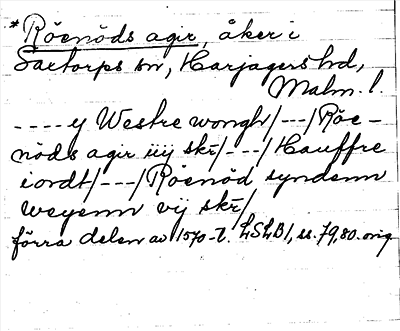 *Röenöds agir, åker i
Saxtorps sn, Harjagers hd,
Malm. l.
---- y Westre wongh/---/Röe-
nöds agir iiij skr/---/Hauffre
iordt/---/Röenöd syndenn
weyenn vij skr/
förra delen av 1570-t. LSLB1, ss. 79, 80. orig.